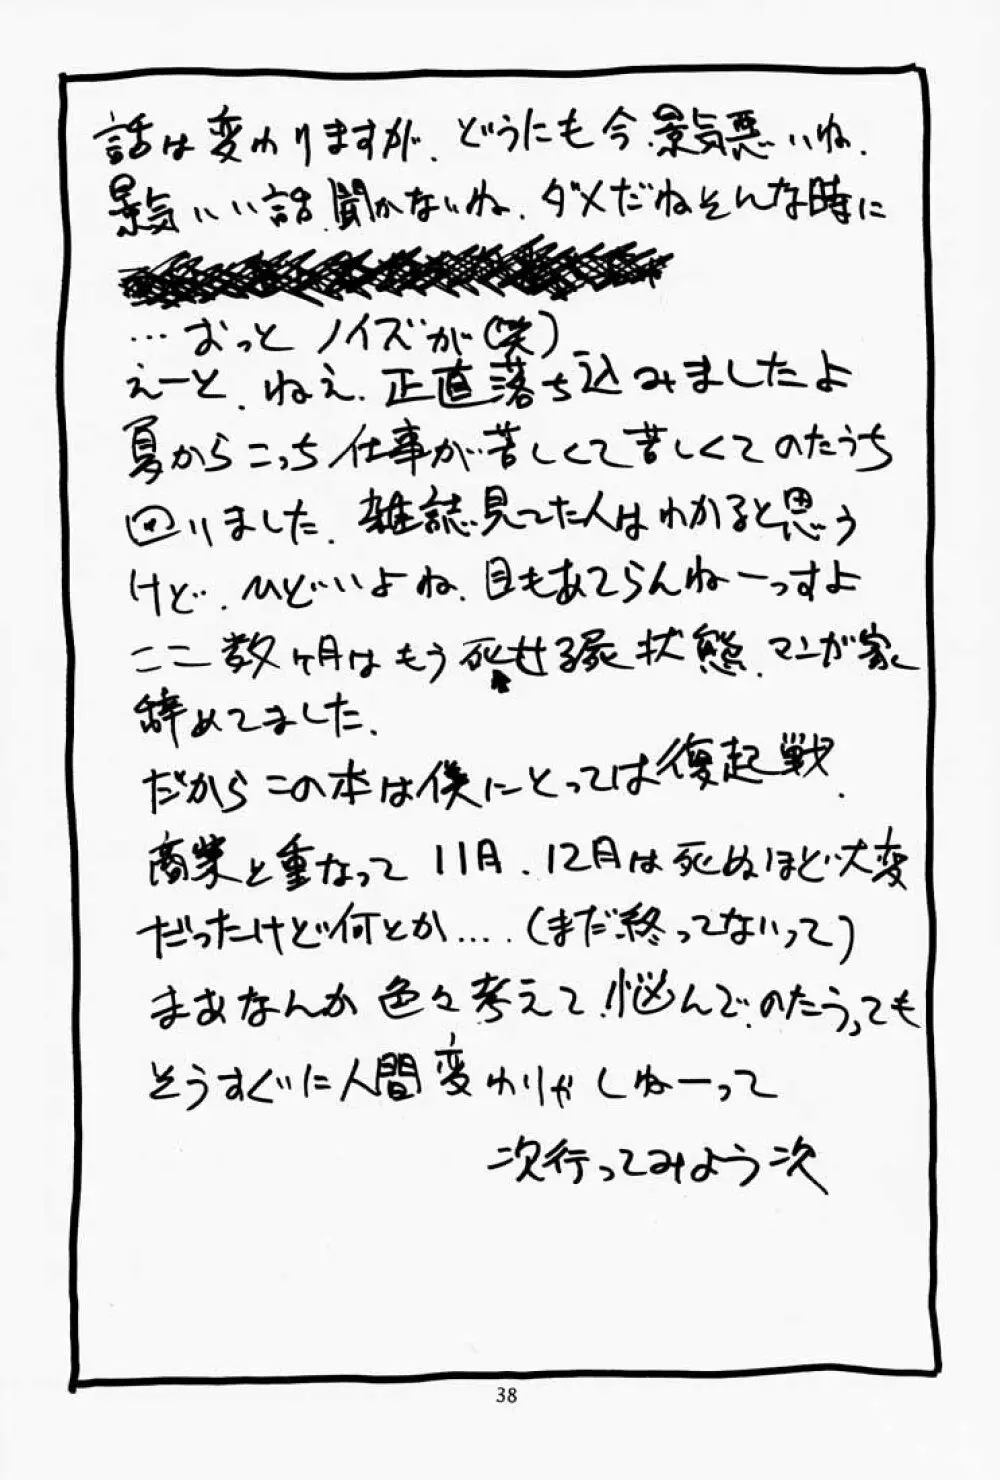 話は変わりますが、どうにも今、景気悪いね、
景気いい話、聞かないね、ダメだねそんな時に
…おっと ノイズが(笑)
えーと、ねえ、正直落ち込みましたよ
夏からこっち仕事が苦しくて苦しくてのたうち
回りました、雑誌見てた人はわかると思う
けど、ひどいよね、目もあてらんねーっすよ
ここ数ヶ月はもう死せる屍状態、マンガ家
辞めてました、
だからこの本は僕にとっては復起戦、
商業と重なって 11月、12月は死ぬほど大変
だったけど何とか…‥(まだ終ってないって)
まあなんか色々考えて、悩んで、のたうっても
そうすぐに人間変わりゃしねーって
次行ってみよう次
38